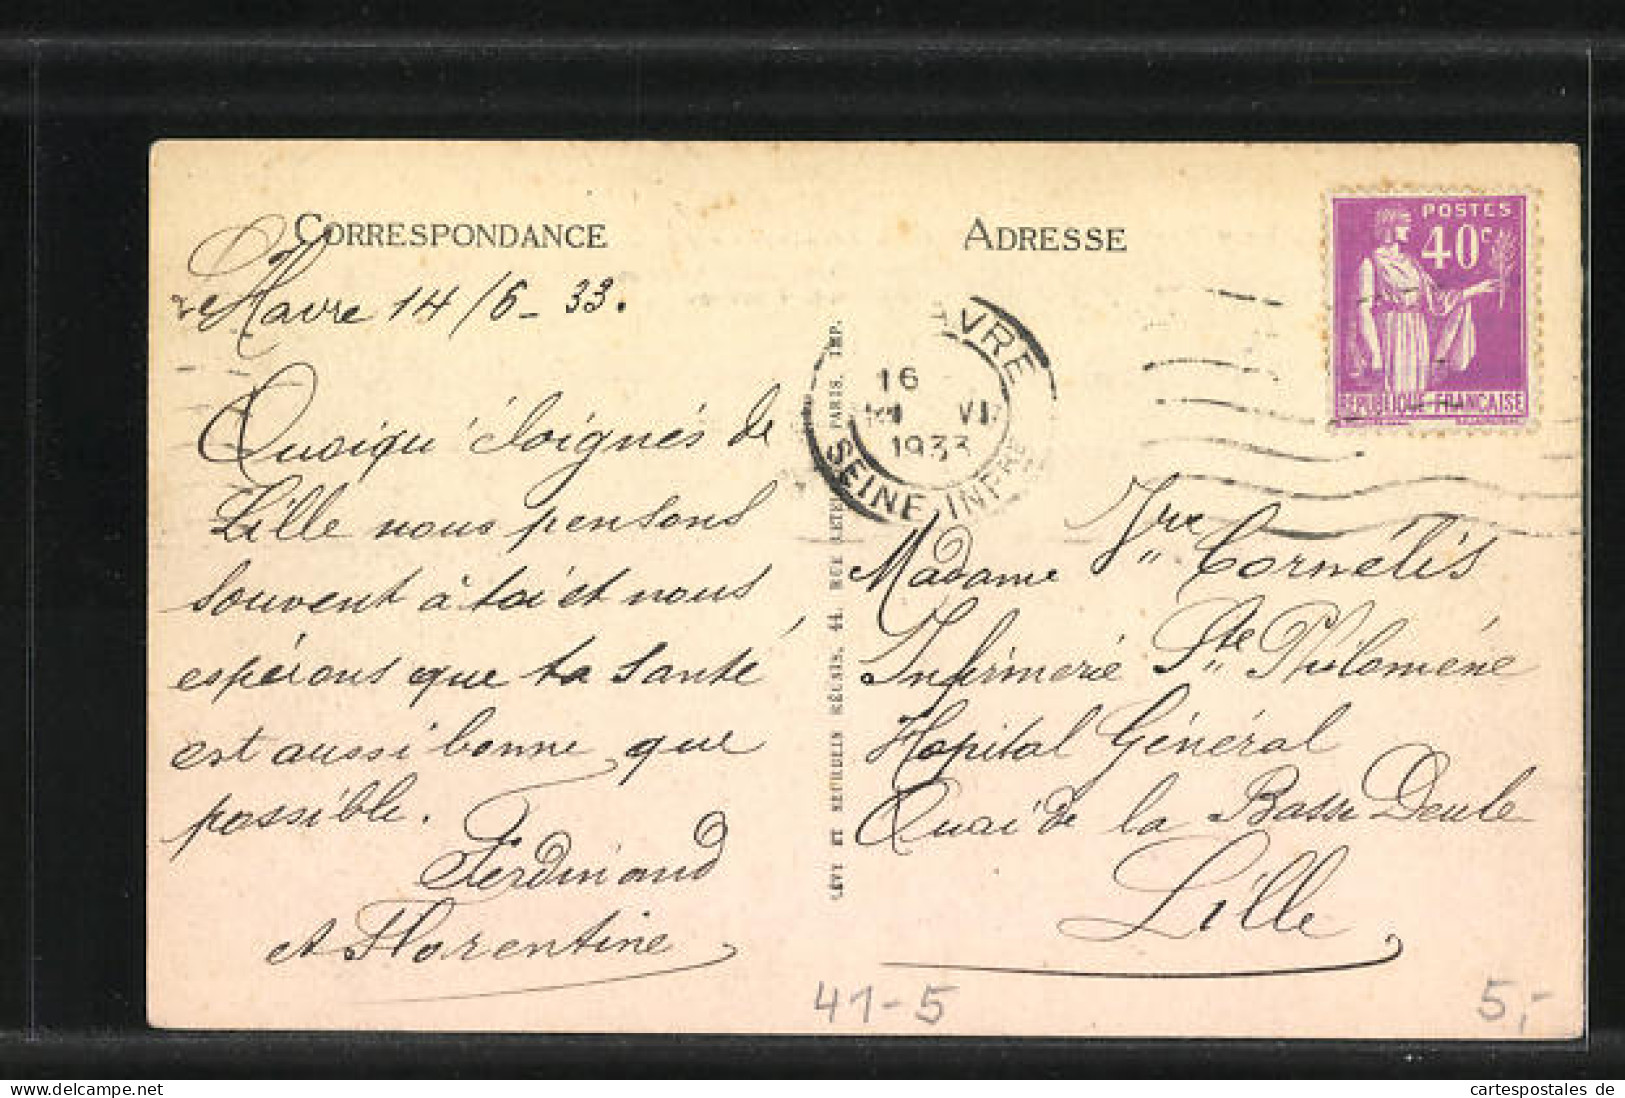 CORRESPONDANCE
Le Havre 14/6-33.
Quoiqu'éloignés de
Lille nous pensons
souvent à toi et nous
espérons que ta santé
est aussi bonne que
possible.
Ferdinand
et Florentine
LÉVY ET NEURDEIN RÉUNIS, 44, RUE LETE PARIS. IMP.
ADRESSE
POSTES
40c
RÉPUBLIQUE FRANÇAISE
AVRE
16
VI
1933
SEINE INFRE
Madame Vve Cornélis
Infirmerie Ste Philomène
Hôpital Général
Quai de la Basse Deule
Lille
41-5
5,-
cartespostales de